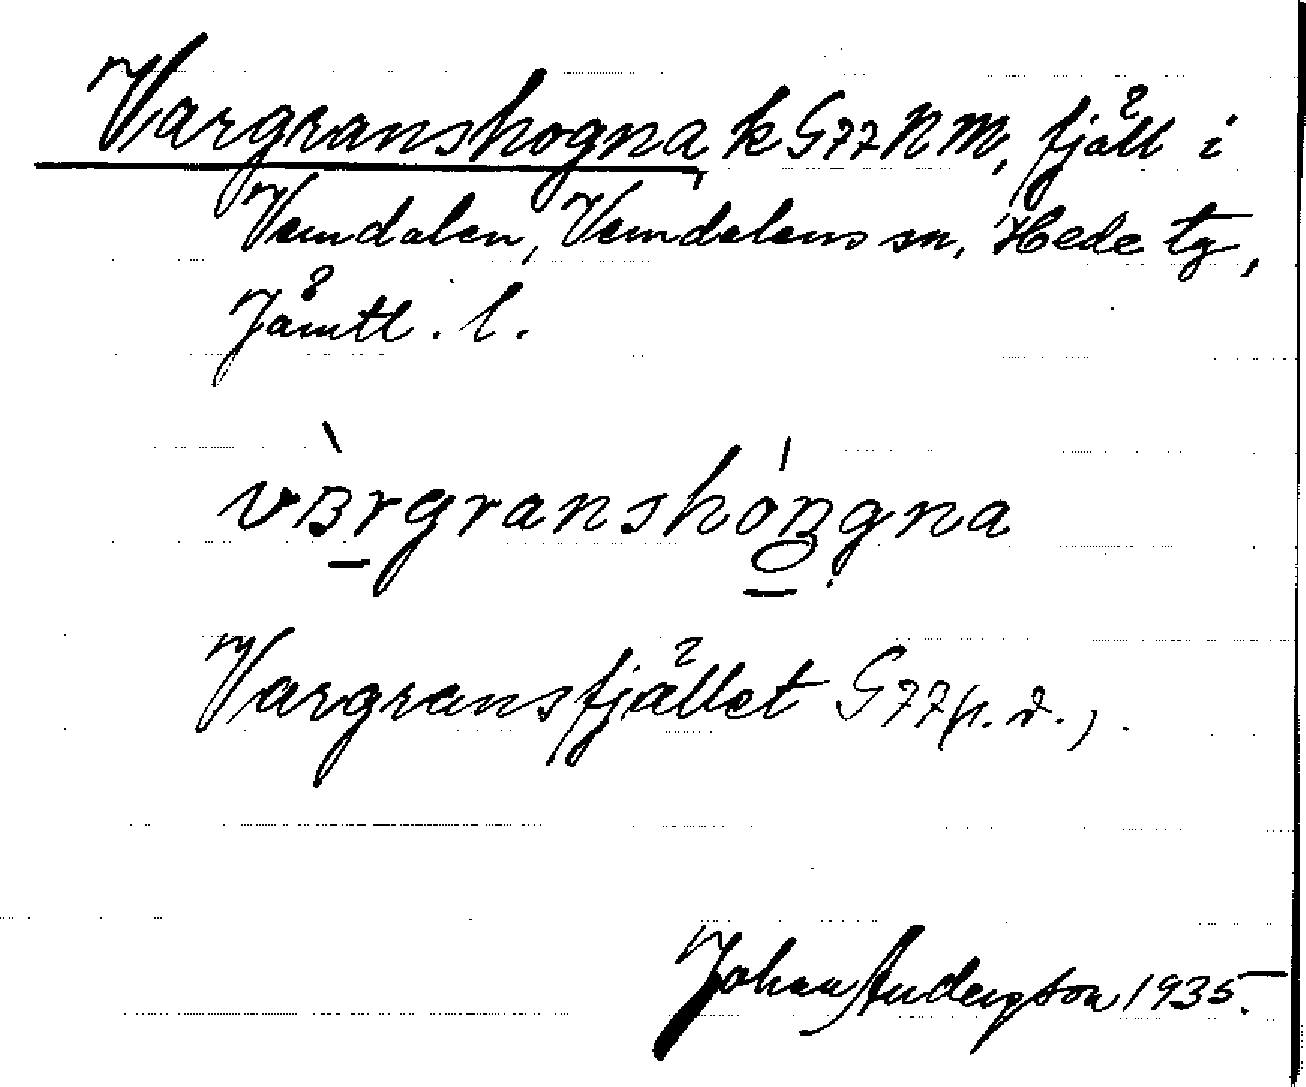 Vargranshogna, k G77 NM, fjäll i
Vemdalen, Vemdalens sn, Hede tg,
Jämtl. l.
vàrgranshóngna
Vargransfjället G77 (p. d.).
Johan Anderson 1935.